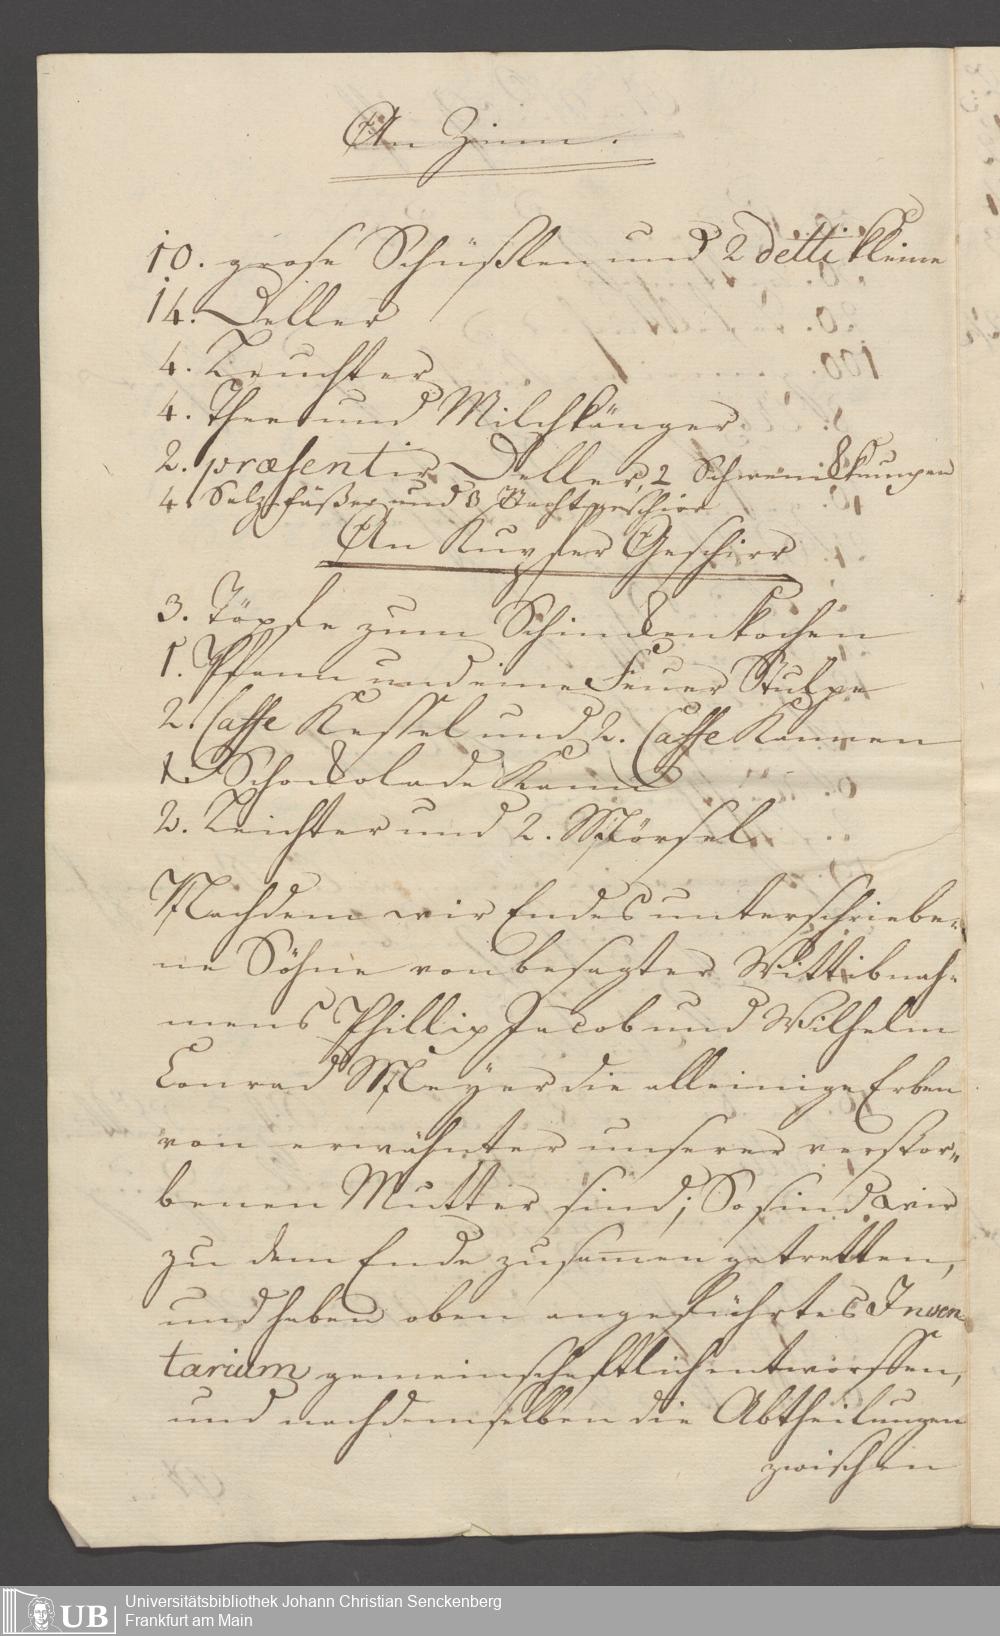 An Zinn.
10. grose Schüßlen und 2 detti kleine
14. Deller
4. Leuchter
4. Thee und Milchkänger
2. præsentir Deller, 2 Schwenkkumpen
4 Salzfäßer und 3 Nachtgeschirr
An Kupfer Geschirr
3. Töpfe zum Schinckenkochen
1. Pfann und eine Feuer Stulpe
2. Caffe Kessel und 2. Caffe Kannen
1. Schockolade Kann
2. Leichter und 2. Mörsel
Nachdem wir Endes unterschriebe-
ne Söhne von besagter Wittib nah-
mens Phillip Jacob und Wilhelm
Conrad Meyer die alleinige Erben
von erwähnter unserer verstor-
benen Mutter sind; So sind wir
zu dem Ende zusamen getretten,
und haben oben angeführtes Inven
tarium gemeinschaftlich entworffen,
und nach demselben die Abtheilungen
zwischen
UB
Universitätsbibliothek Johann Christian Senckenberg
Frankfurt am Main